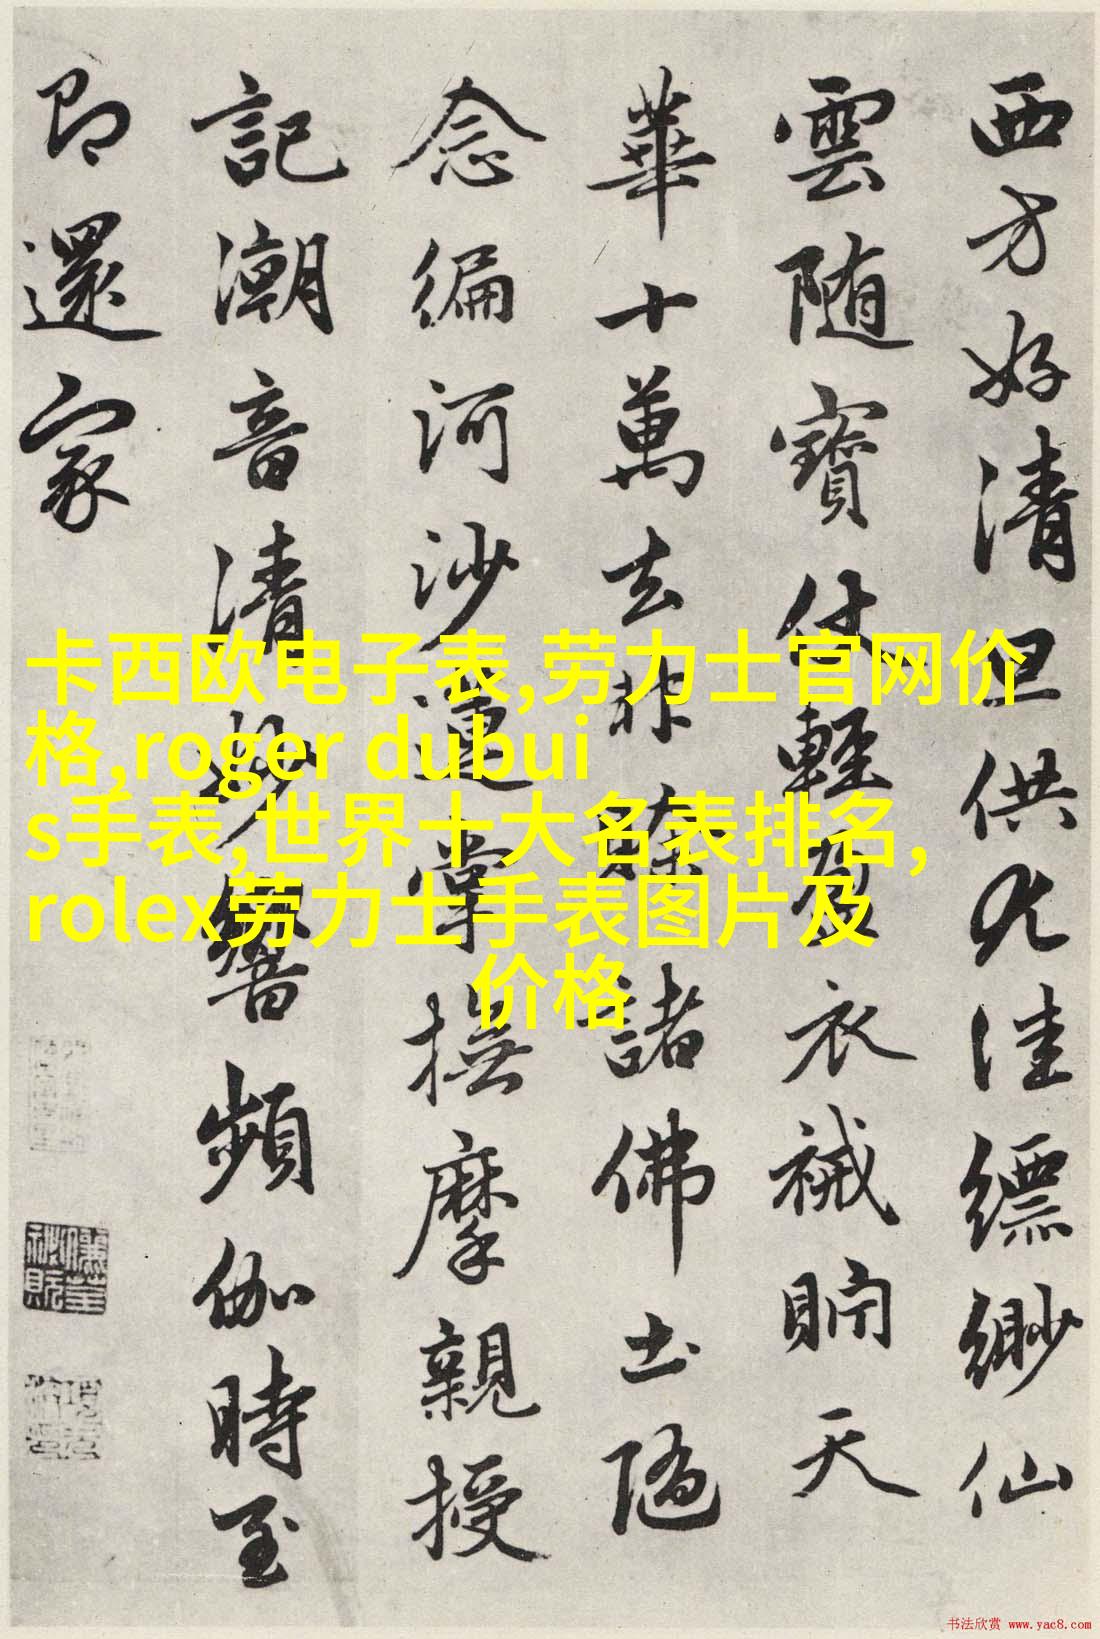 西方好清旦供尤佳縹緲仙
雲随寶仗輕盈衣裓貯天
華十萬去非賒諸佛土隨
念編河沙運掌撫摩親授
記潮音清妙響頻伽時至
即還家
卡西欧电子表,劳力士官网价
格,roger dubui
s手表,世界十大名表排名,
rolex劳力士手表图片及
价格
书法欣赏 www.yac8.com